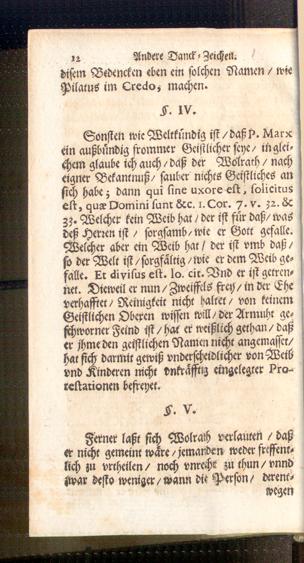 12 Andere Danck-Zeichen.
disem Bedencken eben ein solchen Namen / wie
Pilatus im Credo, machen.
§. IV.
Sonsten wie Weltkündig ist / daß P. Marx
ein außbündig frommer Geistlicher seye / in glei-
chem glaube ich auch / daß der Wolrath / nach
eigner Bekantnuß / sauber nichts Geistliches an
sich habe; dann qui sine uxore est, solicitus
est, quæ Domini sunt &c. 1. Cor. 7. v. 32. &
33. Welcher kein Weib hat / der ist für daß / was
deß Herren ist / sorgsamb / wie er Gott gefalle.
Welcher aber ein Weib hat / der ist vmb daß /
so der Welt ist / sorgfältig / wie er dem Weib ge-
falle. Et divisus est. lo. cit. Vnd er ist getren-
net. Dieweil er nun / Zweiffels frey / in der Ehe
verhafftet / Reinigkeit nicht haltet / von keinem
Geistlichen Oberen wissen will / der Armuht ge-
schworner Feind ist / hat er weißlich gethan / daß
er jhme den geistlichen Namen nicht angemasset /
hat sich darmit gewiß vnderscheidlicher von Weib
vnd Kinderen nicht vnkräfftig eingelegter Pro-
testationen befreyet.
§. V.
Ferner laßt sich Wolrath verlauten / daß
er nicht gemeint wäre / jemanden weder freffent-
lich zu vrtheilen / noch vnrecht zu thun / vnnd
zwar desto weniger / wann die Person / derent-
wegen